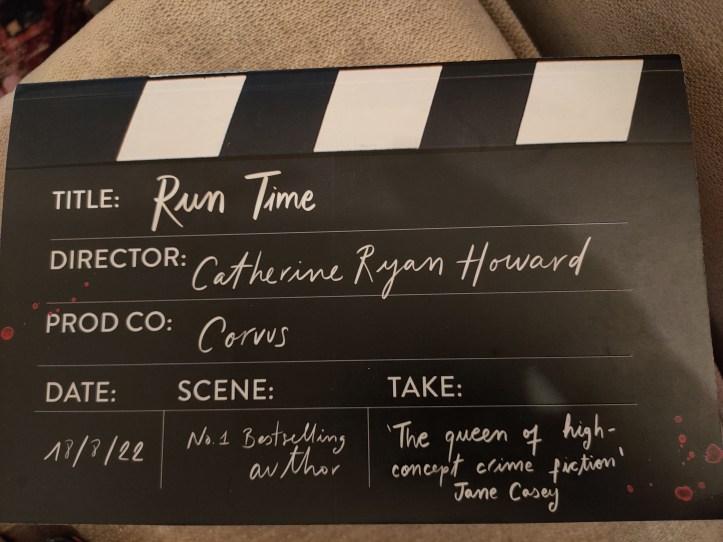 TITLE: Run Time
DIRECTOR: Catherine Ryan Howard
PROD CO: Corvus
DATE: SCENE: TAKE:
18/8/22
No.1 Bestselling
author
'The queen of high-
concept crime fiction'
Jane Casey